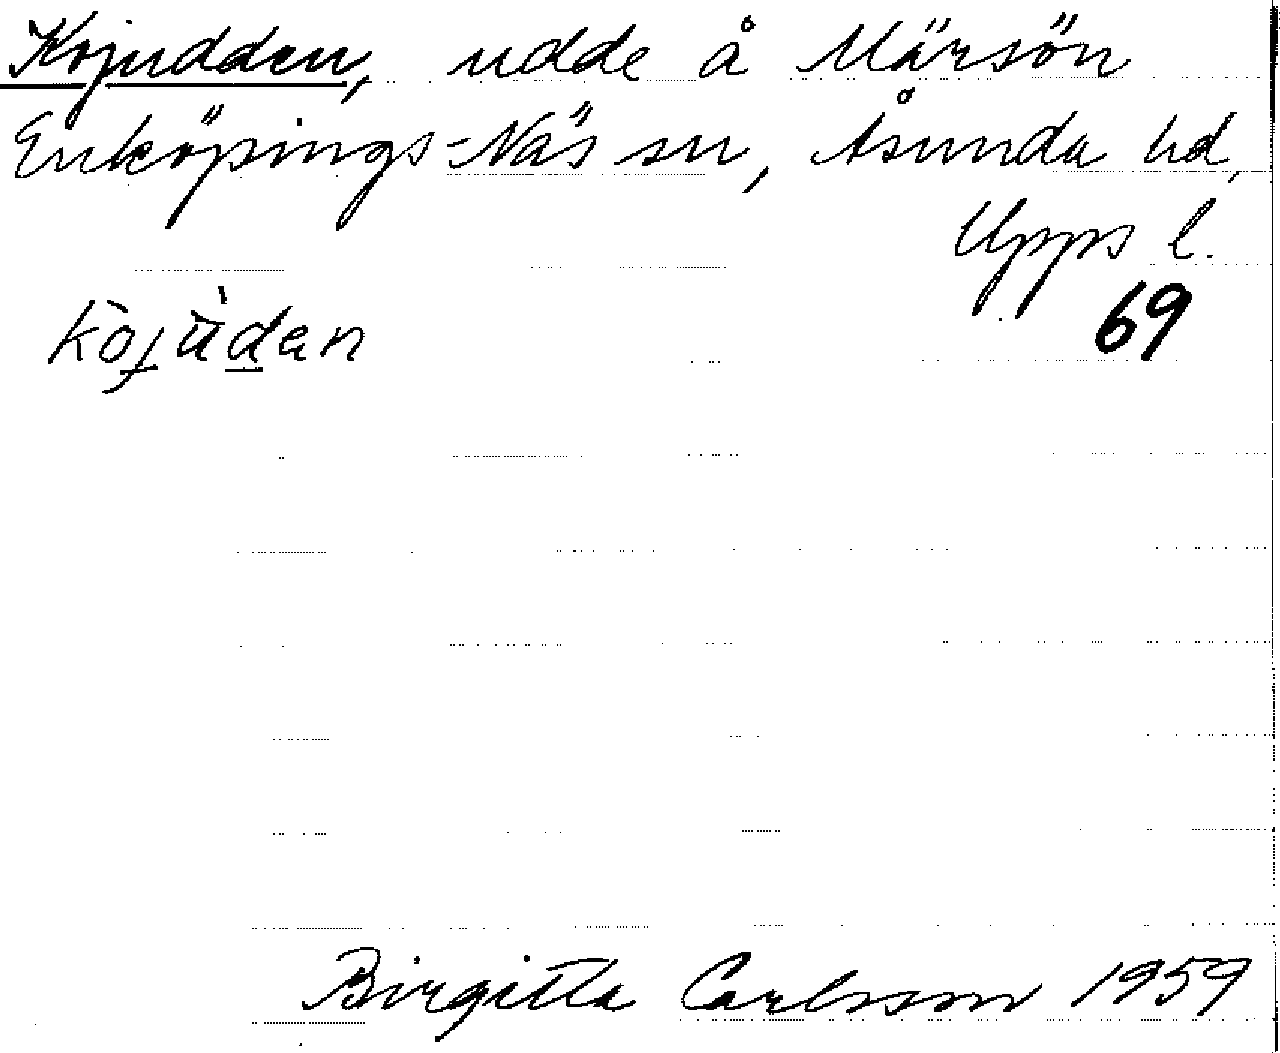 Kojudden, udde å Märsön
Enköpings-Näs sn, Åsunda hd,
Upps l.
69
kòjùdan
Birgitta Carlsson 1959